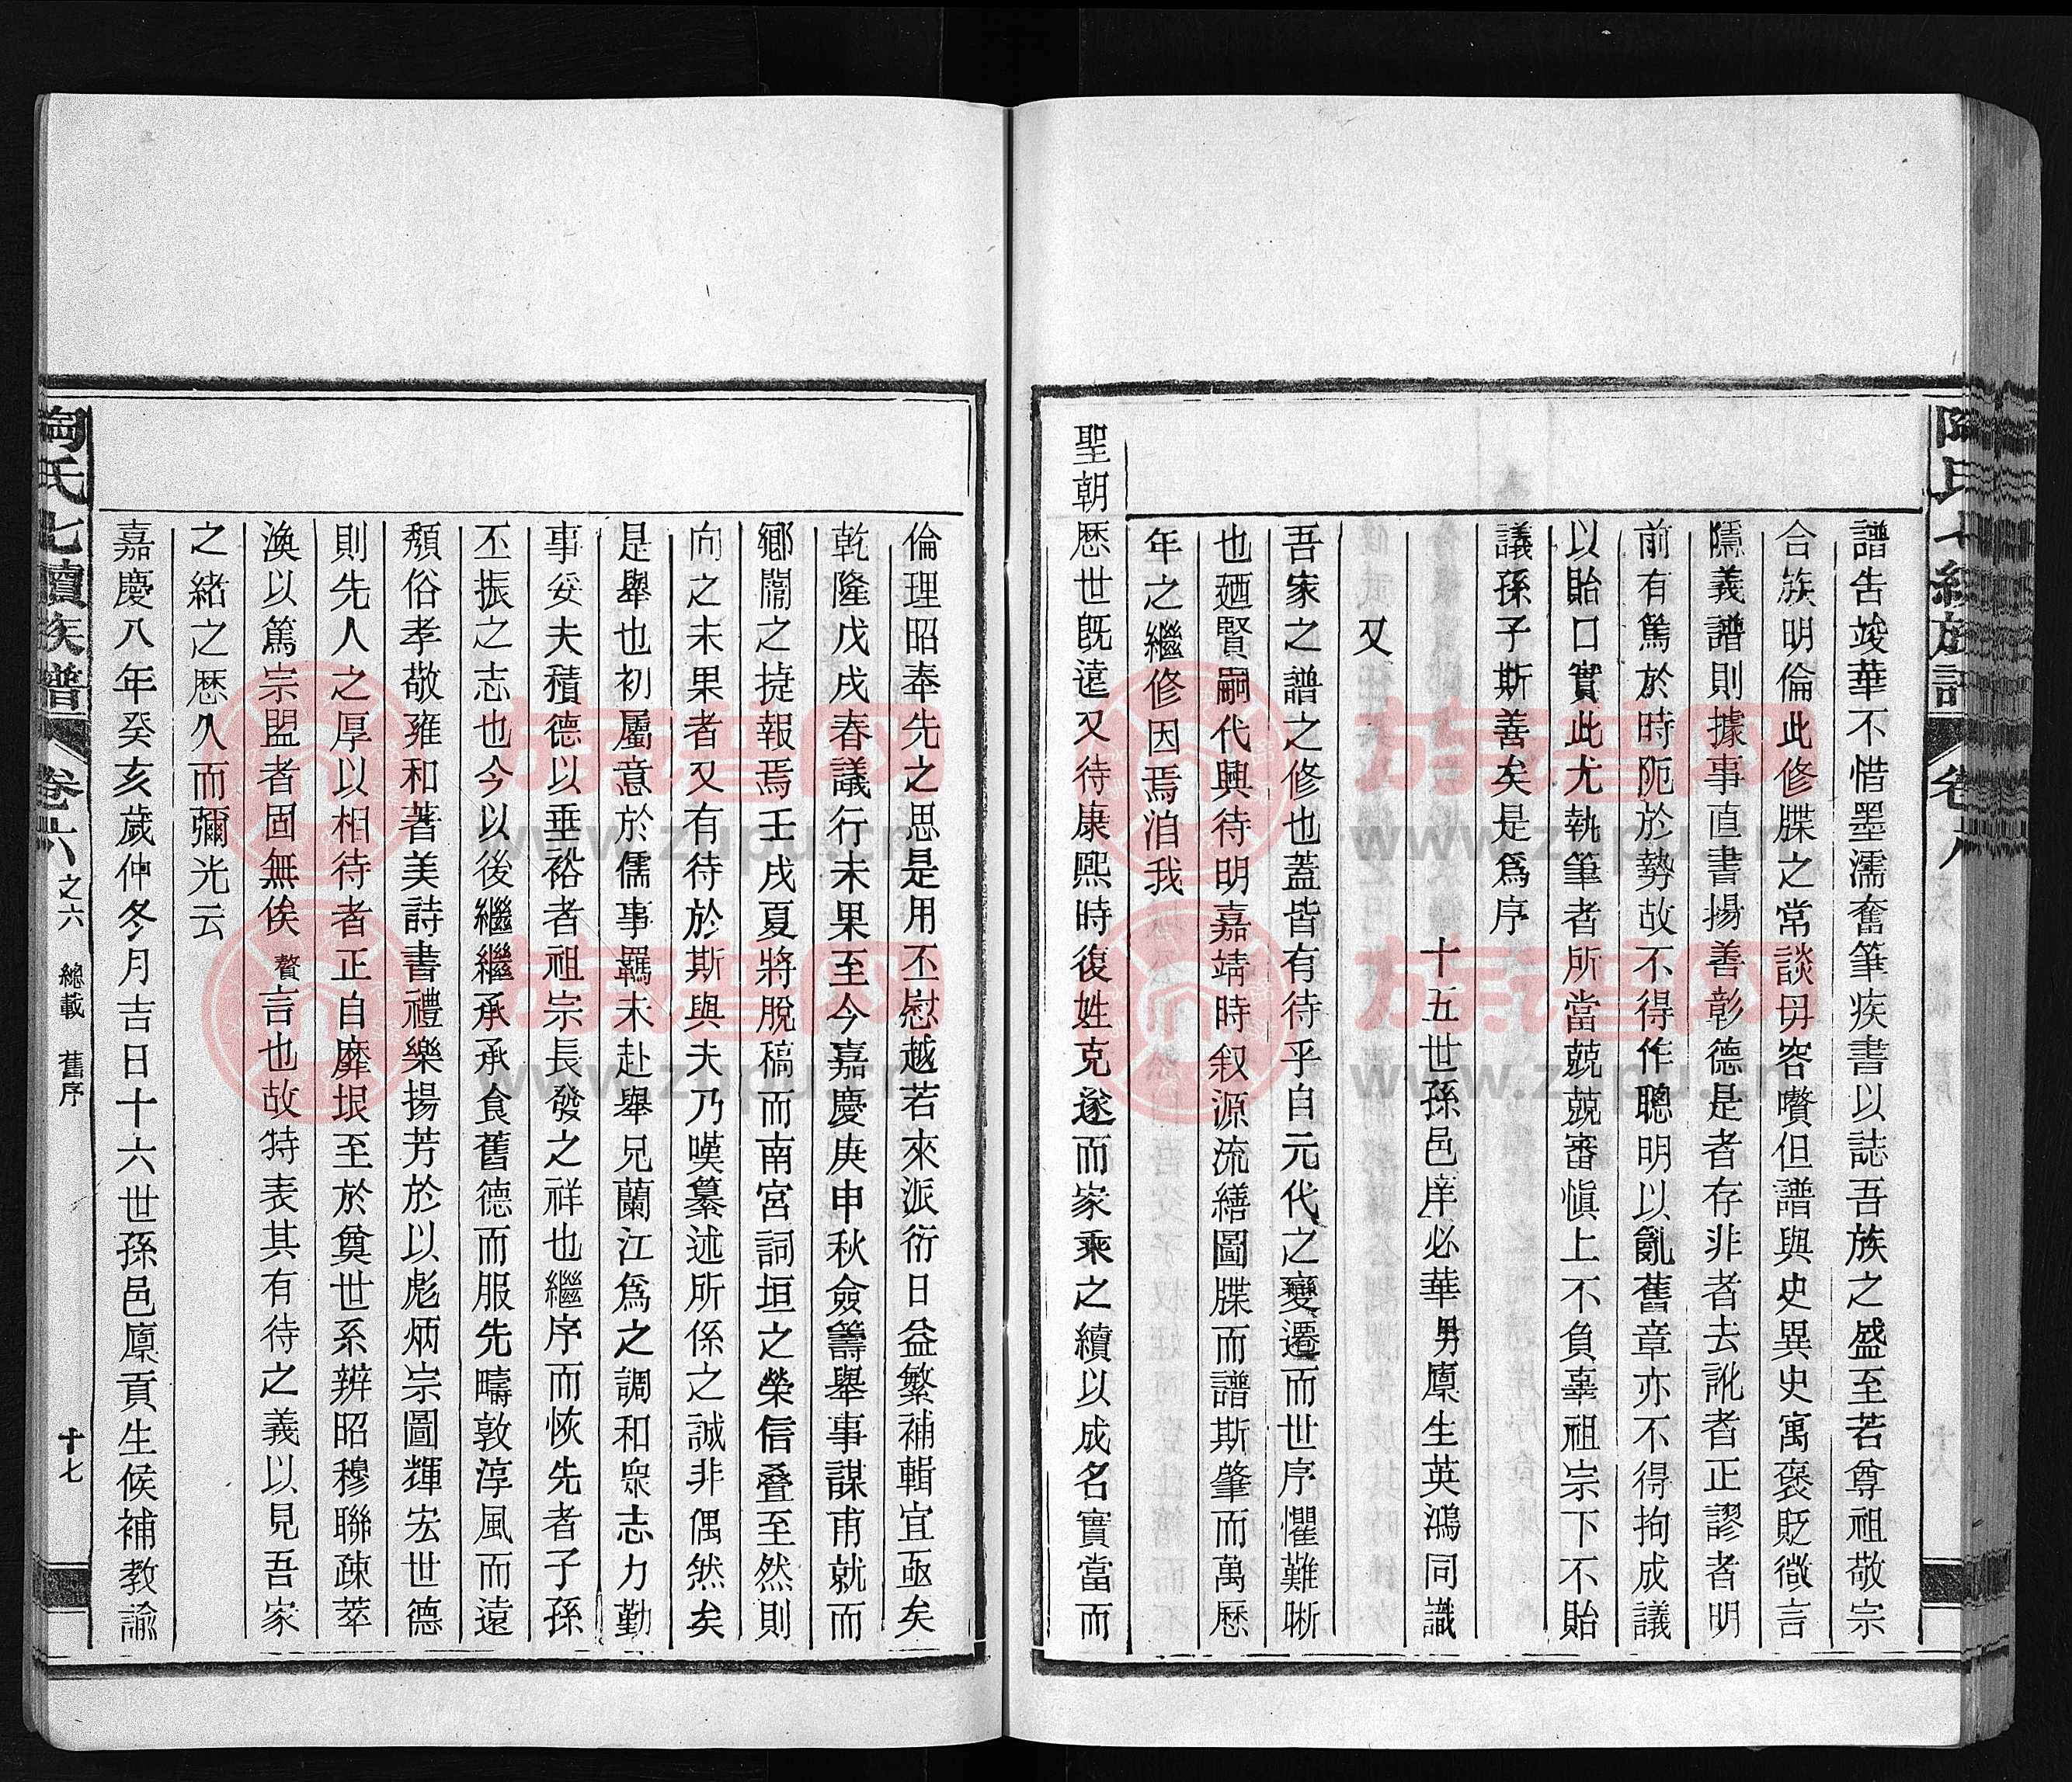 譜告竣華不惜墨濡奮筆疾書以誌吾族之盛至若尊祖敬宗
合族明倫此修牒之常談毋容贅但譜與史異史寓褒貶微言
隱義譜則據事直書揚善彰德是者存非者去訛者正謬者明
前有篤於時阨於勢故不得作聰明以亂舊章亦不得拘成議
以貽口實此尤執筆者所當兢兢審慎上不負辜祖宗下不貽
議孫子斯善矣是爲序
十五世孫邑庠必華男廩生英鴻同識
又
吾家之譜之修也蓋皆有待乎自元代之變遷而世序懼難晰
也廼賢嗣代興待明嘉靖時叙源流繕圖牒而譜斯肇而萬歷
年之繼修因焉洎我
聖朝歷世既遠又待康熙時復姓克遂而家乘之續以成名實當而
倫理昭奉先之思是用丕慰越若來派衍日益繁補輯宜亟矣
乾隆戊戌春議行未果至今嘉慶庚申秋僉籌舉事謀甫就而
鄉闈之捷報焉壬戌夏將脫稿而南宮詞垣之榮信叠至然則
向之未果者又有待於斯與夫乃嘆纂述所係之誠非偶然矣
是舉也初屬意於儒事羈未赴舉兄蘭江爲之調和衆志力勤
事妥夫積德以垂裕者祖宗長發之祥也繼序而恢先者子孫
丕振之志也今以後繼繼承承食舊德而服先疇敦淳風而遠
頹俗孝敬雍和著美詩書禮樂揚芳於以彪炳宗圖輝宏世德
則先人之厚以相待者正自靡垠至於奠世系辨昭穆聯疎萃
渙以篤宗盟者固無俟贅言也故特表其有待之義以見吾家
之緒之歷久而彌光云
嘉慶八年癸亥歲仲冬月吉日十六世孫邑廩貢生候補教諭
陶氏七續族譜 卷六之六 總載 舊序 十七
族譜网
www.zupu.cn